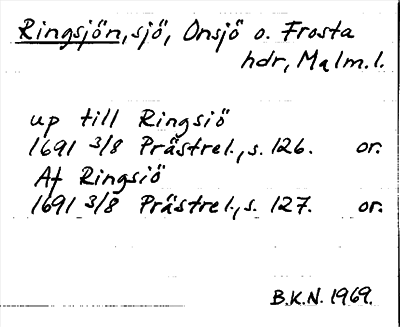 Ringsjön, sjö, Onsjö o. Frosta
hdr, Malm. l.
up till Ringsiö
1691 3/8 Prästrel., s. 126. or.
Af Ringsiö
1691 3/8 Prästrel., s. 127. or.
B.K.N. 1969.